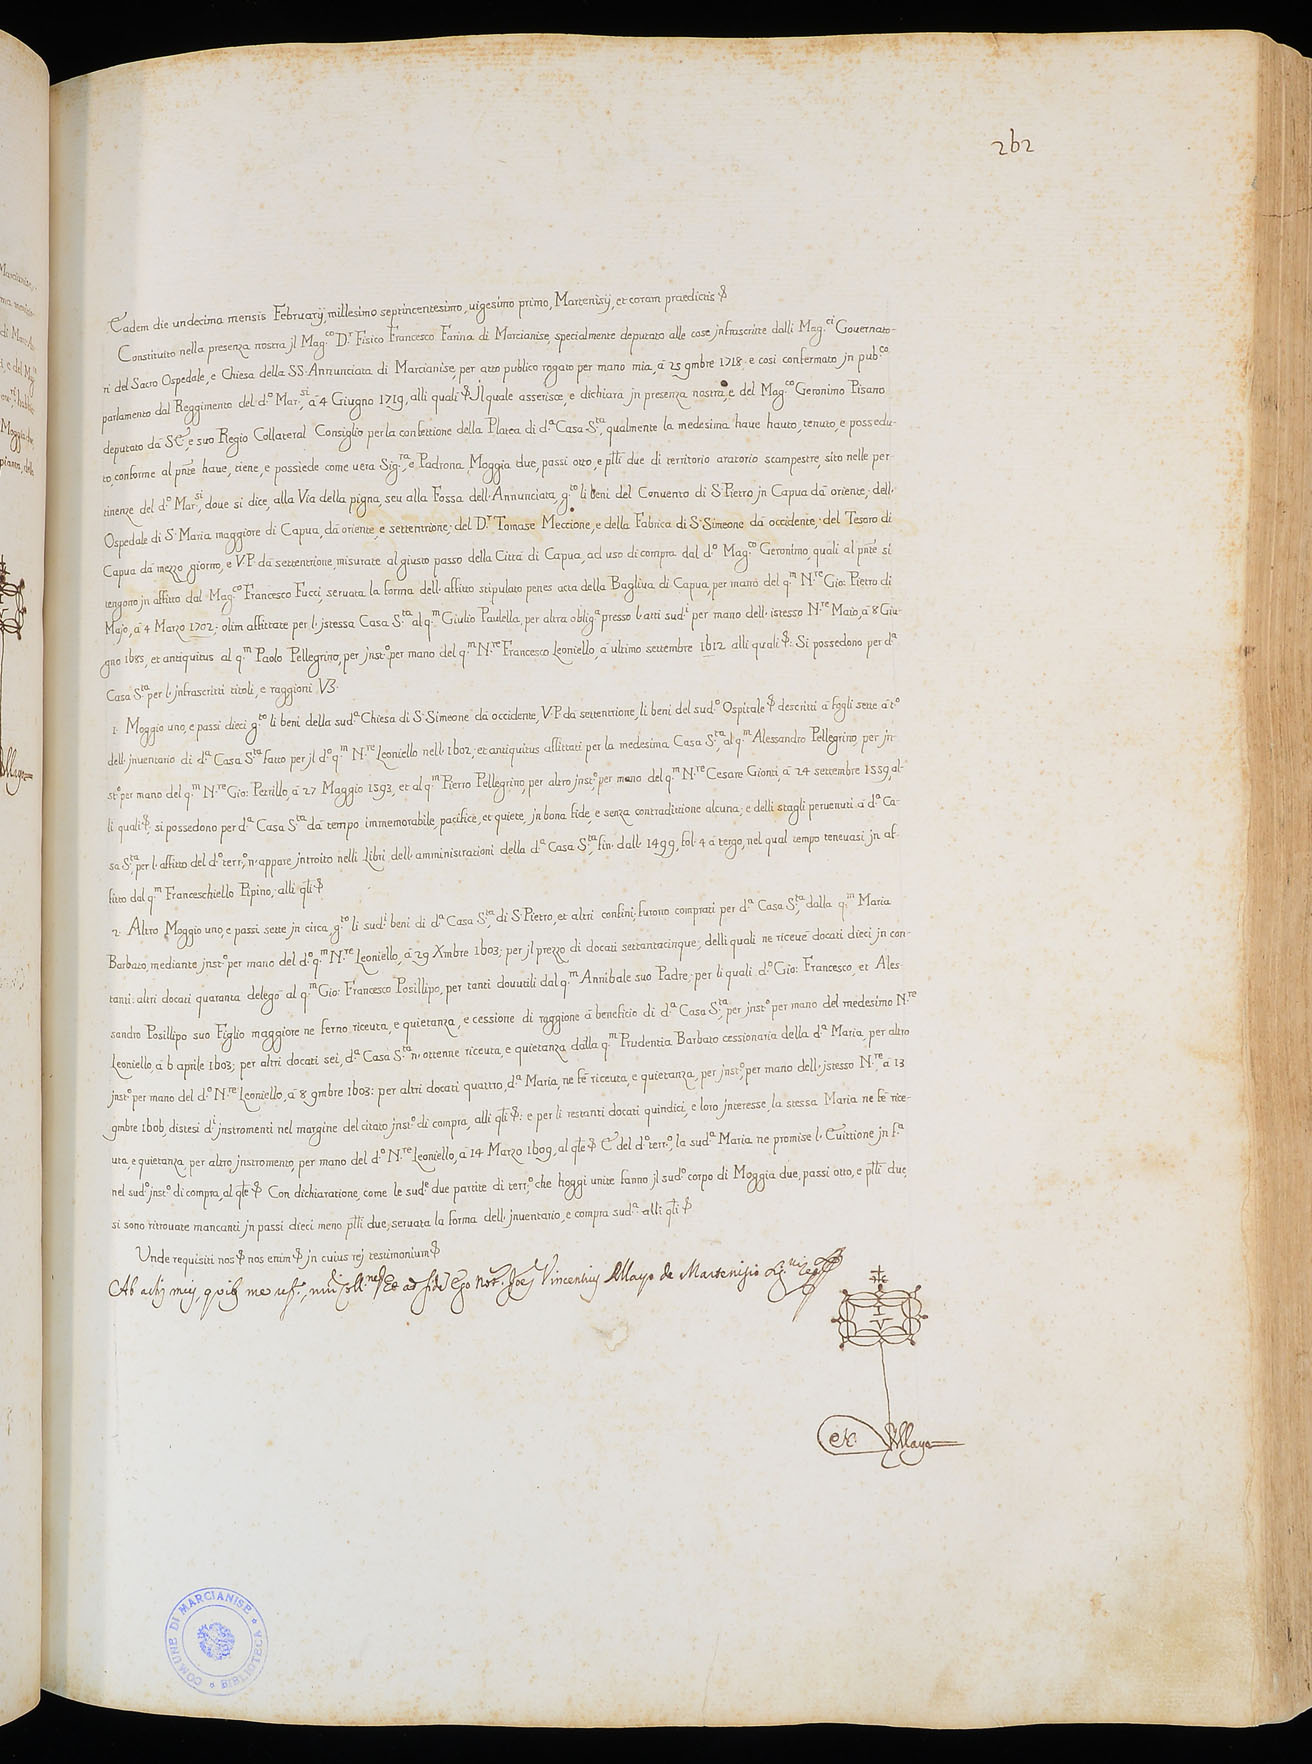 262
Eadem die undecima mensis Februarij, millesimo septincentesimo, uigesimo primo, Martenisij, et coram praedictis
Constituito nella presenza nostra jl Mag.co D.r Fisico Francesco Farina di Marcianise, specialmente deputato alle cose jnfrascritte dalli Mag.ci Gouernato-
ri del Sacro Ospedale, e Chiesa della SS. Annunciata di Marcianise, per atto publico rogato per mano mia, à 25 9mbre 1718. e così confermato jn pub.co
parlamento dal Reggimento del d.o Mar.si, à 4 Giugno 1719, alli quali Jl quale asserisce, e dichiara jn presenza nostra, e del Mag.co Geronimo Pisano
deputato dà S.E. e suo Regio Collateral Consiglio per la confettione della Platea di d.a Casa S.ta, qualmente la medesima haue hauto, tenuto, e possedu-
to, conforme al pnte haue, tiene, e possiede come uera Sig.ra, e Padrona, Moggia due, passi otto, e ptli due di territorio aratorio scampestre, sito nelle per-
tinenze del d.o Mar.si, doue si dice, alla Via della pigna, seu alla Fossa dell'Annunciata, g.to li beni del Conuento di S. Pietro jn Capua dà oriente, dell'
Ospedale di S. Maria maggiore di Capua, dà oriente, e settentrione; del D.r Tomase Meccione, e della Fabrica di S. Simeone dà occidente, del Tesoro di
Capua dà mezzo giorno, e V.P. dà settentrione, misurate al giusto passo della Città di Capua, ad uso di compra dal d.o Mag.co Geronimo, quali al pnte si
tengono jn affitto dal Mag.co Francesco Fucci, seruata la forma dell'affitto stipulato penes acta della Bagliua di Capua, per mano del q.m N.re Gio: Pietro di
Majo, à 4 Marzo 1702; olim affittate per l'jstessa Casa S.ta al q.m Giulio Paulella, per altra oblig.a presso l'atti sud.i per mano dell'istesso N.re Maio, à 8 Giu-
gno 1685, et antiquitus al q.m Paolo Pellegrino, per jnst.o per mano del q.m N.re Francesco Leoniello, à ultimo settembre 1612 alli quali Si possedono per d.a
Casa S.ta per l'jnfrascritti titoli, e raggioni V3.
1. Moggio uno, e passi dieci, g.to li beni della sud.a Chiesa di S. Simeone dà occidente, V.P. dà settentrione, li beni del sud.o Ospitale descritti à fogli sette à t.o
dell'jnuentario di d.a Casa S.ta fatto per jl d.o q.m N.re Leoniello nell'1602, et antiquitus affittati per la medesima Casa S.ta, al q.m Alessandro Pellegrino, per jn-
st.o per mano del q.m N.re Gio: Petrillo, à 27 Maggio 1593, et al q.m Pierro Pellegrino, per altro jnst.o, per mano del q.m N.re Cesare Gionti, à 24 settembre 1559, al-
li quali; si possedono per d.a Casa S.ta dà tempo immemorabile, pacifice, et quiete, jn bona fide, e senza contradittione alcuna; e delli stagli peruenuti à d.a Ca-
sa S.ta, per l'affitto del d.o terr.o, n'appare jntroito nelli Libri dell'amministrationi della d.a Casa S.ta, fin dall'1499, fol. 4 à tergo, nel qual tempo teneuasi jn af-
fitto dal q.m Franceschiello Pipino; alli qtli
2. Altro Moggio uno, e passi sette jn circa, g.to li sud.i beni di d.a Casa S.ta, di S. Pietro, et altri confini, furono comprati per d.a Casa S.ta, dalla q.m Maria
Barbato, mediante jnst.o per mano del d.o q.m N.re Leoniello, à 29 Xmbre 1603; per jl prezzo di docati settantacinque; delli quali ne riceuè docati dieci jn con-
tanti: altri docati quaranta delegò al q.m Gio: Francesco Posillipo, per tanti douutili dal q.m Annibale suo Padre; per li quali d.o Gio: Francesco, et Ales-
sandro Posillipo suo Figlio maggiore ne ferno riceuta, e quietanza, e cessione di raggione à beneficio di d.a Casa S.ta, per jnst.o per mano del medesimo N.re
Leoniello, à 6 aprile 1603; per altri docati sei, d.a Casa S.ta n'ottenne riceuta, e quietanza dalla q.m Prudentia Barbato cessionaria della d.a Maria, per altro
jnst.o per mano del d.o N.re Leoniello, à 8 9mbre 1603: per altri docati quattro, d.a Maria, ne fè riceuta, e quietanza, per jnst.o, per mano dell'jstesso N.re, à 13
9mbre 1606, distesi d.i jnstromenti nel margine del citato jnst.o di compra, alli qtli: e per li restanti docati quindici, e loro jnteresse, la stessa Maria ne fè rice-
uta, e quietanza, per altro jnstromento, per mano del d.o N.re Leoniello, à 14 Marzo 1609, al qle E del d.o terr.o, la sud.a Maria ne promise l'Euittione jn f.a
nel sud.o jnst.o di compra, al qle Con dichiaratione, come le sud.e due partite di terr.o, che hoggi unite fanno jl sud.o corpo di Moggia due, passi otto, e ptli due,
si sono ritrouate mancanti jn passi dieci meno ptli due, seruata la forma dell'jnuentario, e compra sud.a alli qtli
Unde requisiti nos nos enim jn cuius rej testimonium
Ab actis meis, quibus me ref.o, Et ad fidem Ego Not. Joes Vincentius Allayo de Martenisio
IV
ex. Allayo
COMUNE DI MARCIANISE * BIBLIOTECA *